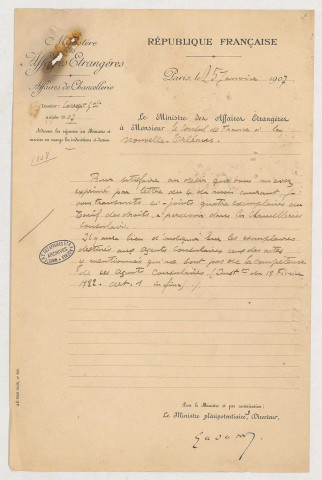 Ministère
des
Affaires Etrangères
Affaires de Chancellerie
RÉPUBLIQUE FRANÇAISE
Paris, le 15 janvier 1907
Le Ministre des Affaires Etrangères
à Monsieur le Consul de France à la
Nouvelle Orléans
Pour satisfaire au désir que vous m'avez
exprimé par lettre du 4 du mois courant, j'ai
transmets ci-joints quatre exemplaires du
Tarif des droits à percevoir dans les Chancelleries
consulaires.
Il y aura lieu d'indiquer sur les exemplaires
destinés aux agents consulaires ceux des actes
y mentionnés qui ne sont pas de la compétence
de ces Agents Consulaires (du 18 Février
art. 1 in fine)./.
ARCHIVES
Pour le Ministre et par autorisation:
Le Ministre plénipotentiaire, Directeur,